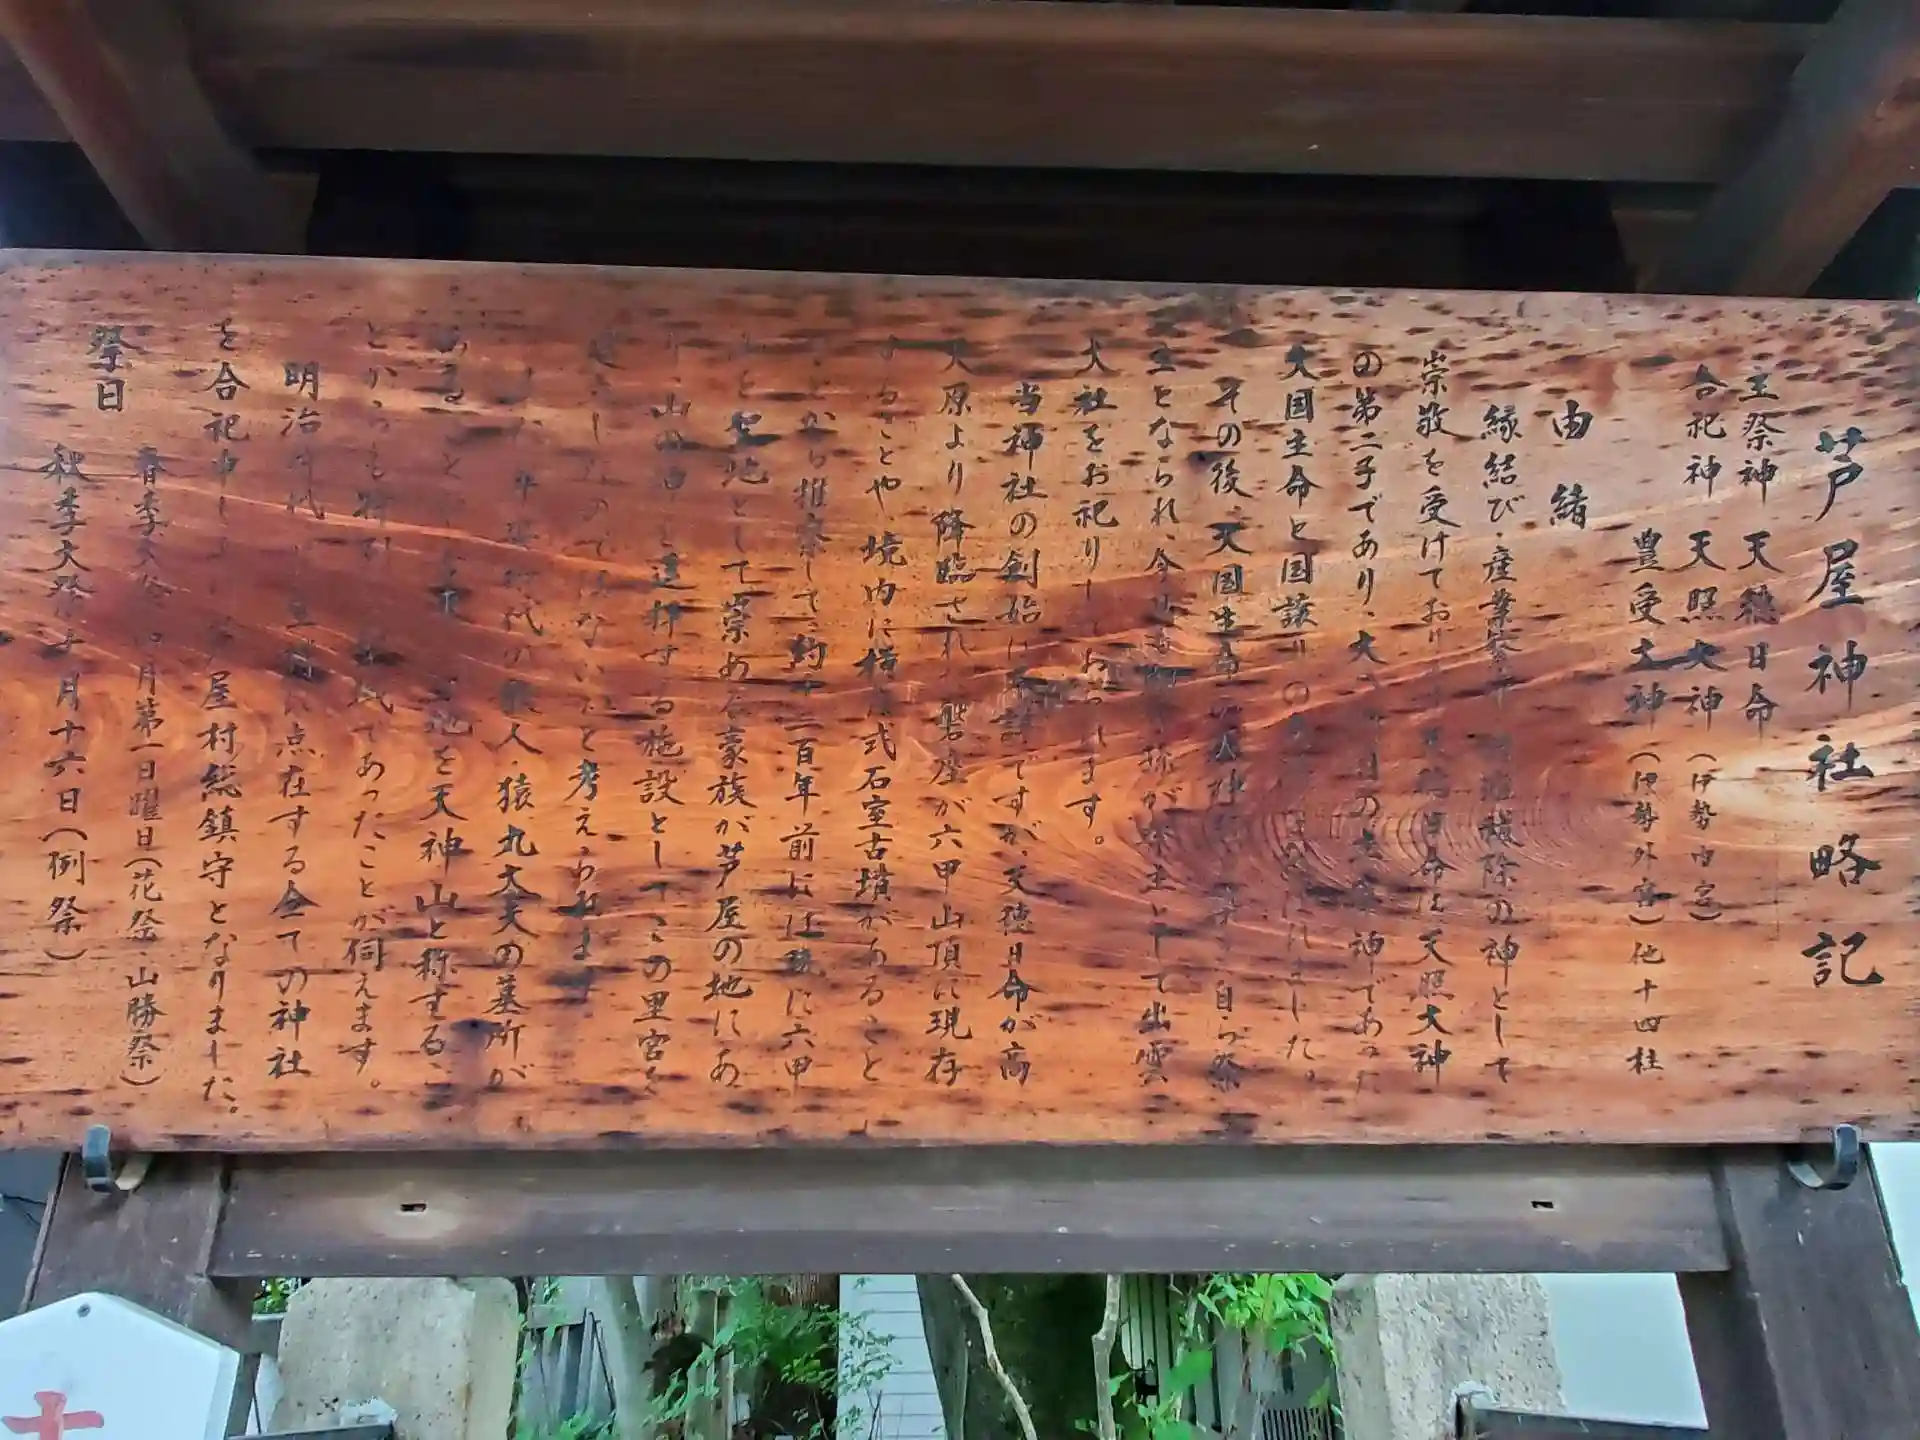 芦屋神社略記
主祭神 天穂日命
合祀神 天照大神（伊勢内宮）
豊受大神（伊勢外宮）他十四柱
由緒
縁結び・産業 除の神として
崇敬を受けており 天穂日命は天照大神
の第二子であり、大 神であった
大国主命と国譲りの した。
その後、大国主命 自ら祭
主となられ、今 が祭主として出雲
大社をお祀りしております。
当神社の創始は ですが、天穂日命が高
天原より降臨された磐座が六甲山頂に現存
することや、境内に横穴式石室古墳があること
ことから推察して、約千三百年前には既に六甲
山を聖地として崇める豪族が芦屋の地にあ
り、山の神を遥拝する施設としてこの里宮を
造立したのではないかと考えられます
また、平安時代の歌人・猿丸大夫の墓所が
あること 地を天神山と称するこ
とからも特別 であったことが伺えます。
明治時代 点在する全ての神社
を合祀申し 芦屋村総鎮守となりました。
祭日
春季大祭 四月第一日曜日（花祭・山勝祭）
秋季大祭 十月十六日（例祭）